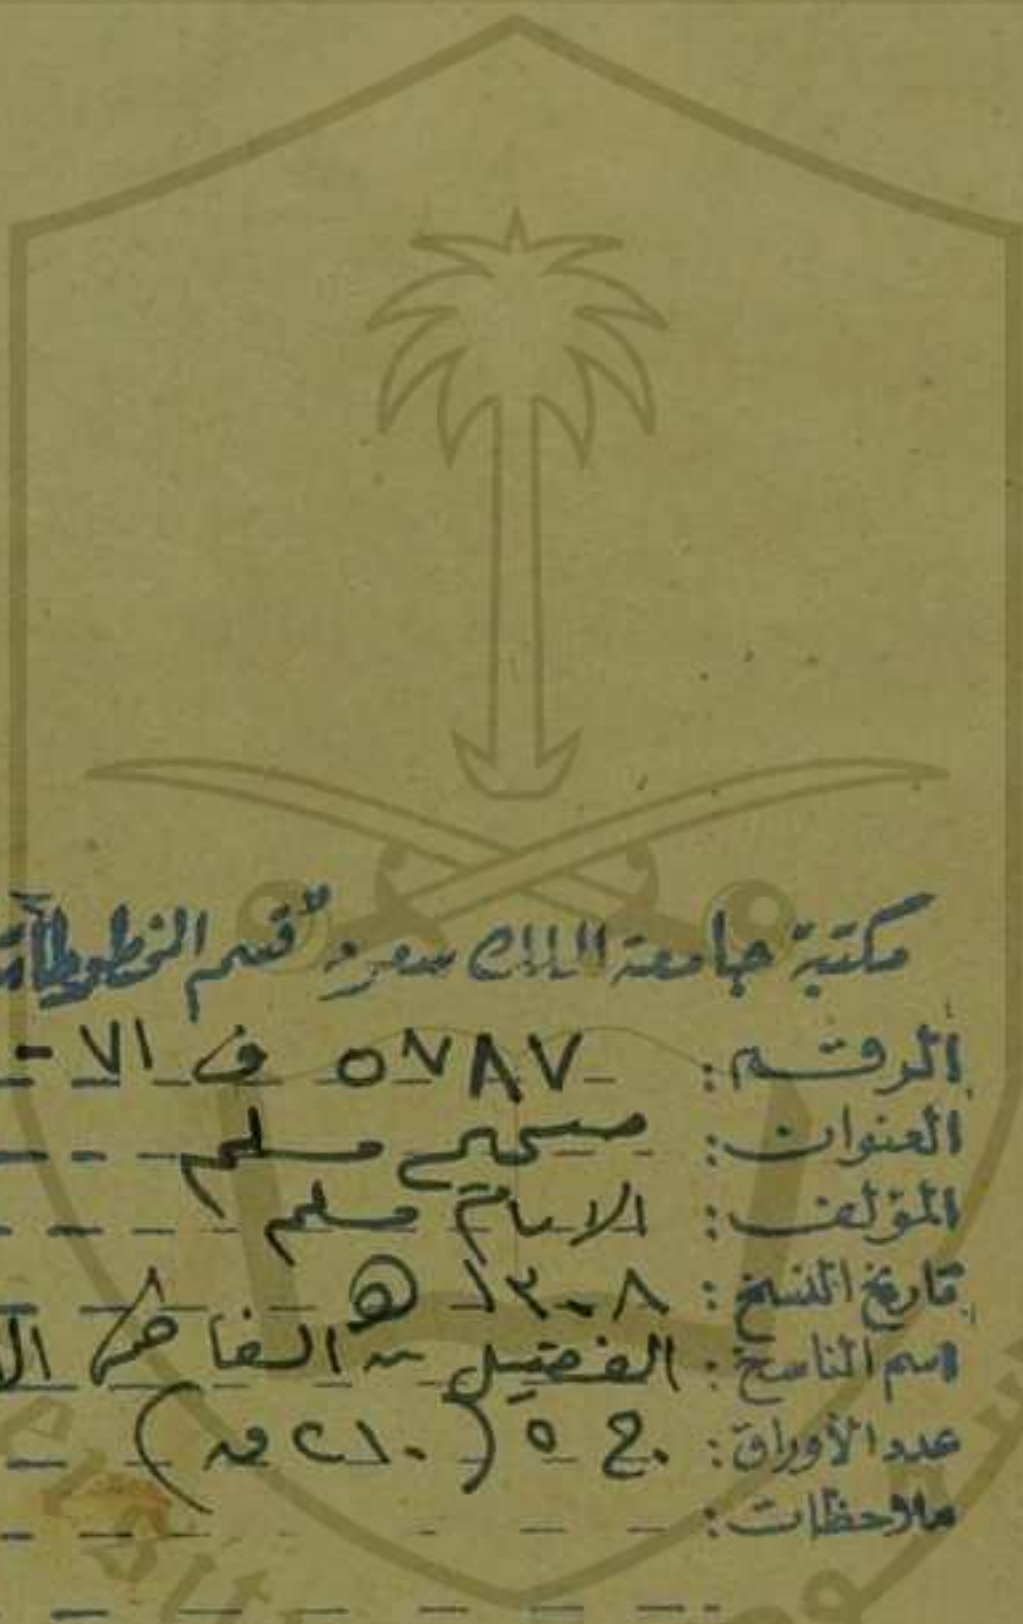 مكتبة جامعة الملك سعود قسم المخطوطات
الرقم: ٥٧٨٧ ف ٧١ -
العنوان: صحيح مسلم
المؤلف: الامام مسلم
تاريخ النسخ: ١٣٠٨ هـ
اسم الناسخ: الفضيل بن الفا
عدد الأوراق: ج ٥ (٢١٠ ق)
ملاحظات: